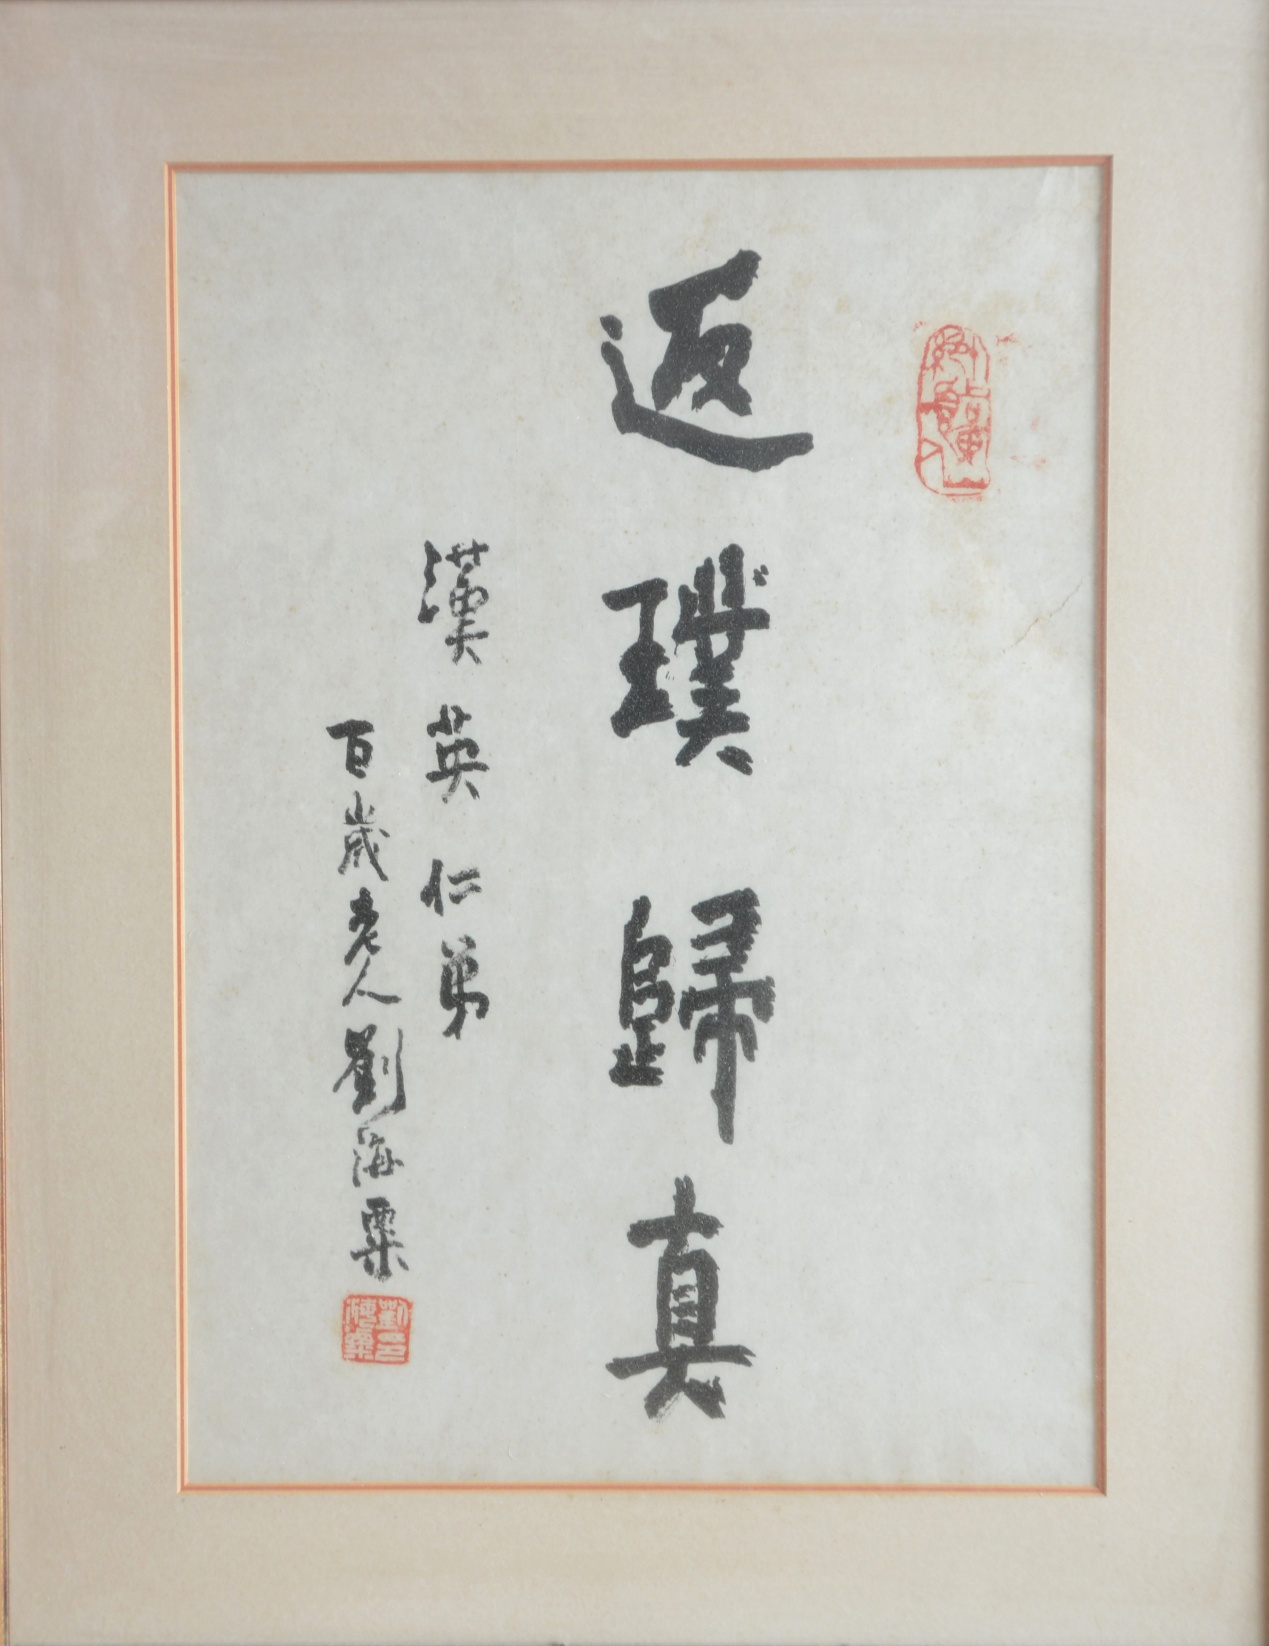 返璞歸真
漢英仁弟
百歲老人劉海粟